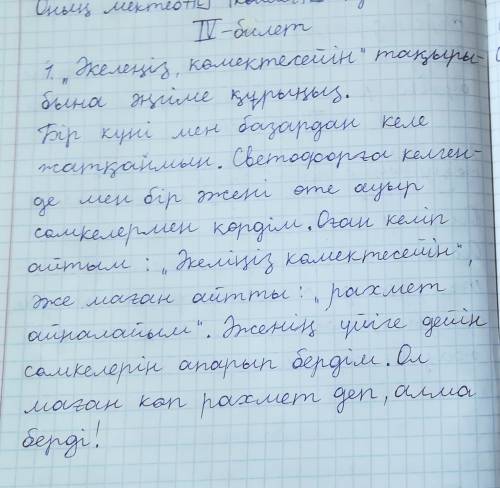 Оның мектебінің
IV-билет
1. „Әкелеңіз, көмектесейін" тақыры-
бына әңгіме құрыңыз.
Бір күні мен базардан келе
жатқанмын. Светофорға келген-
де мен бір әжені өте ауыр
сөмкелермен көрдім. Оған келіп
айтым: „Әкеліңіз көмектесейін",
әже маған айтты: „рахмет
айналайым". Әженің үйіге дейін
сөмкелерін апарып бердім. Ол
маған көп рахмет деп, алма
берді!